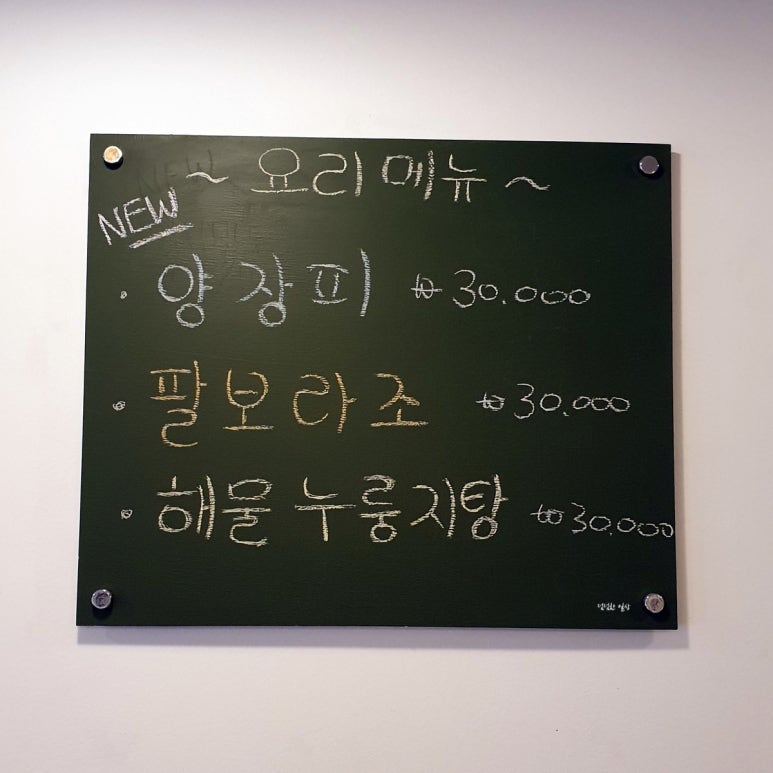 ~ 요리 메뉴 ~
NEW
· 양장피 ₩30.000
· 팔보라조 ₩30.000
· 해물누룽지탕 ₩30.000